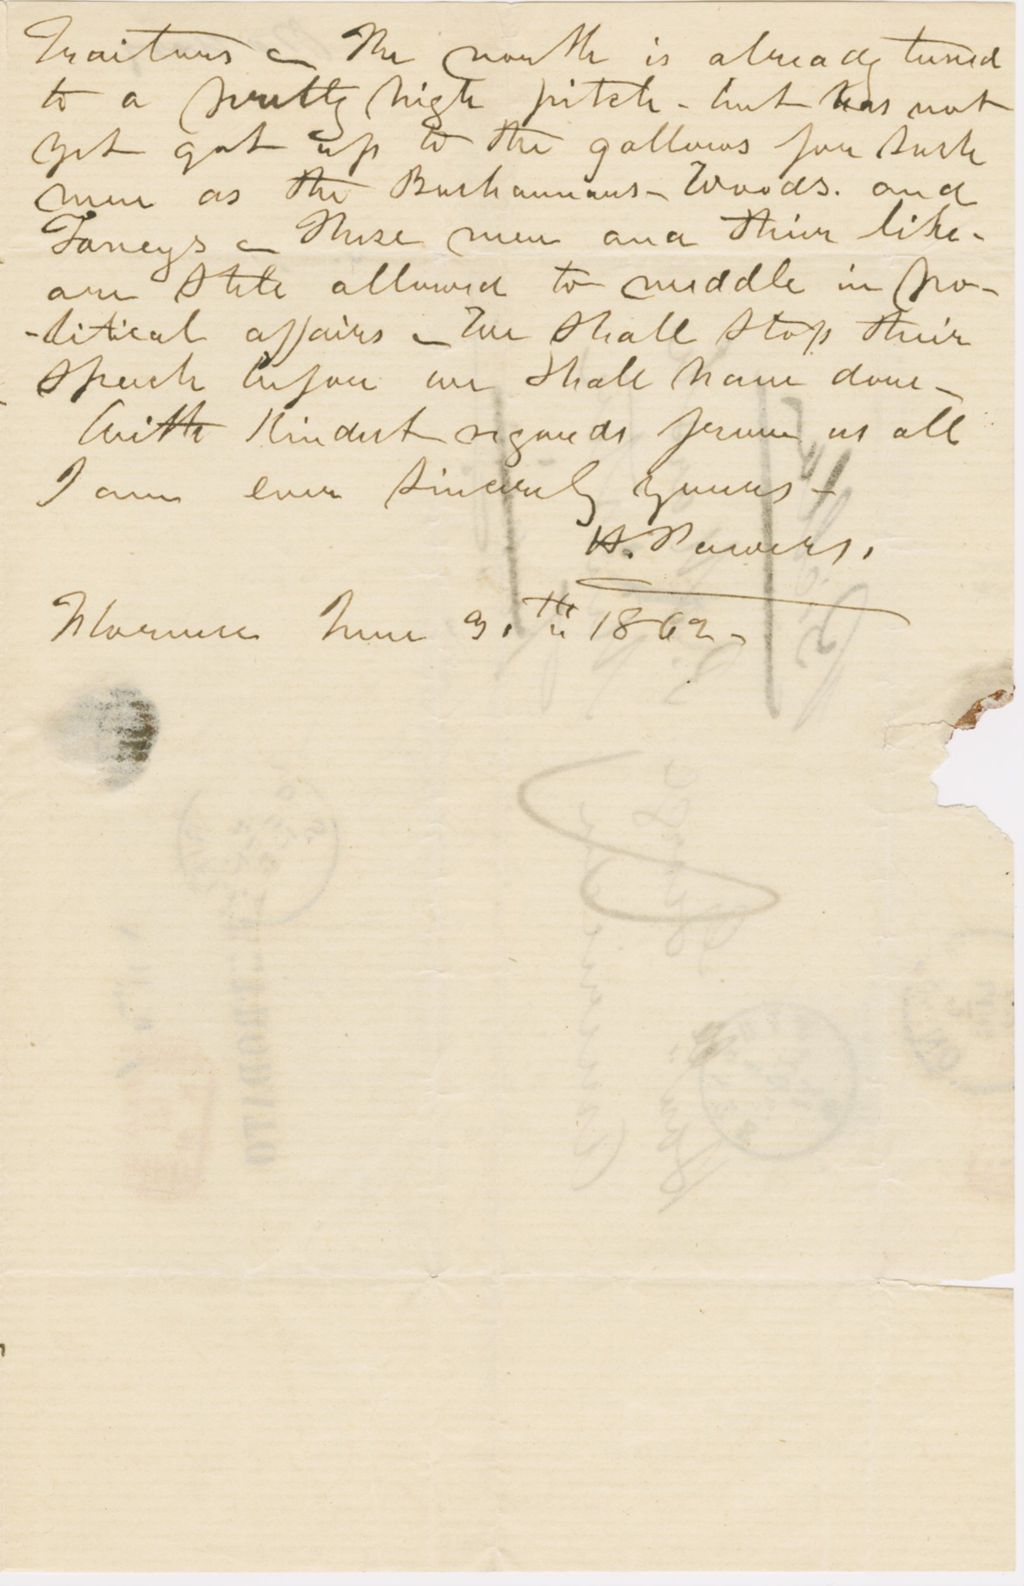 Traitors – The north is already tuned
to a pretty high pitch – but has not
yet got up to the gallows for such
men as the Buchannans – Woods. and
Taneys – These men and their like –
are still allowed to meddle in po-
-litical affairs – We shall stop their
speech before we shall have done –
With Kindest regards from us all
I am ever sincerely yours –
H. Powers.
Florence June 3.th 1862 –